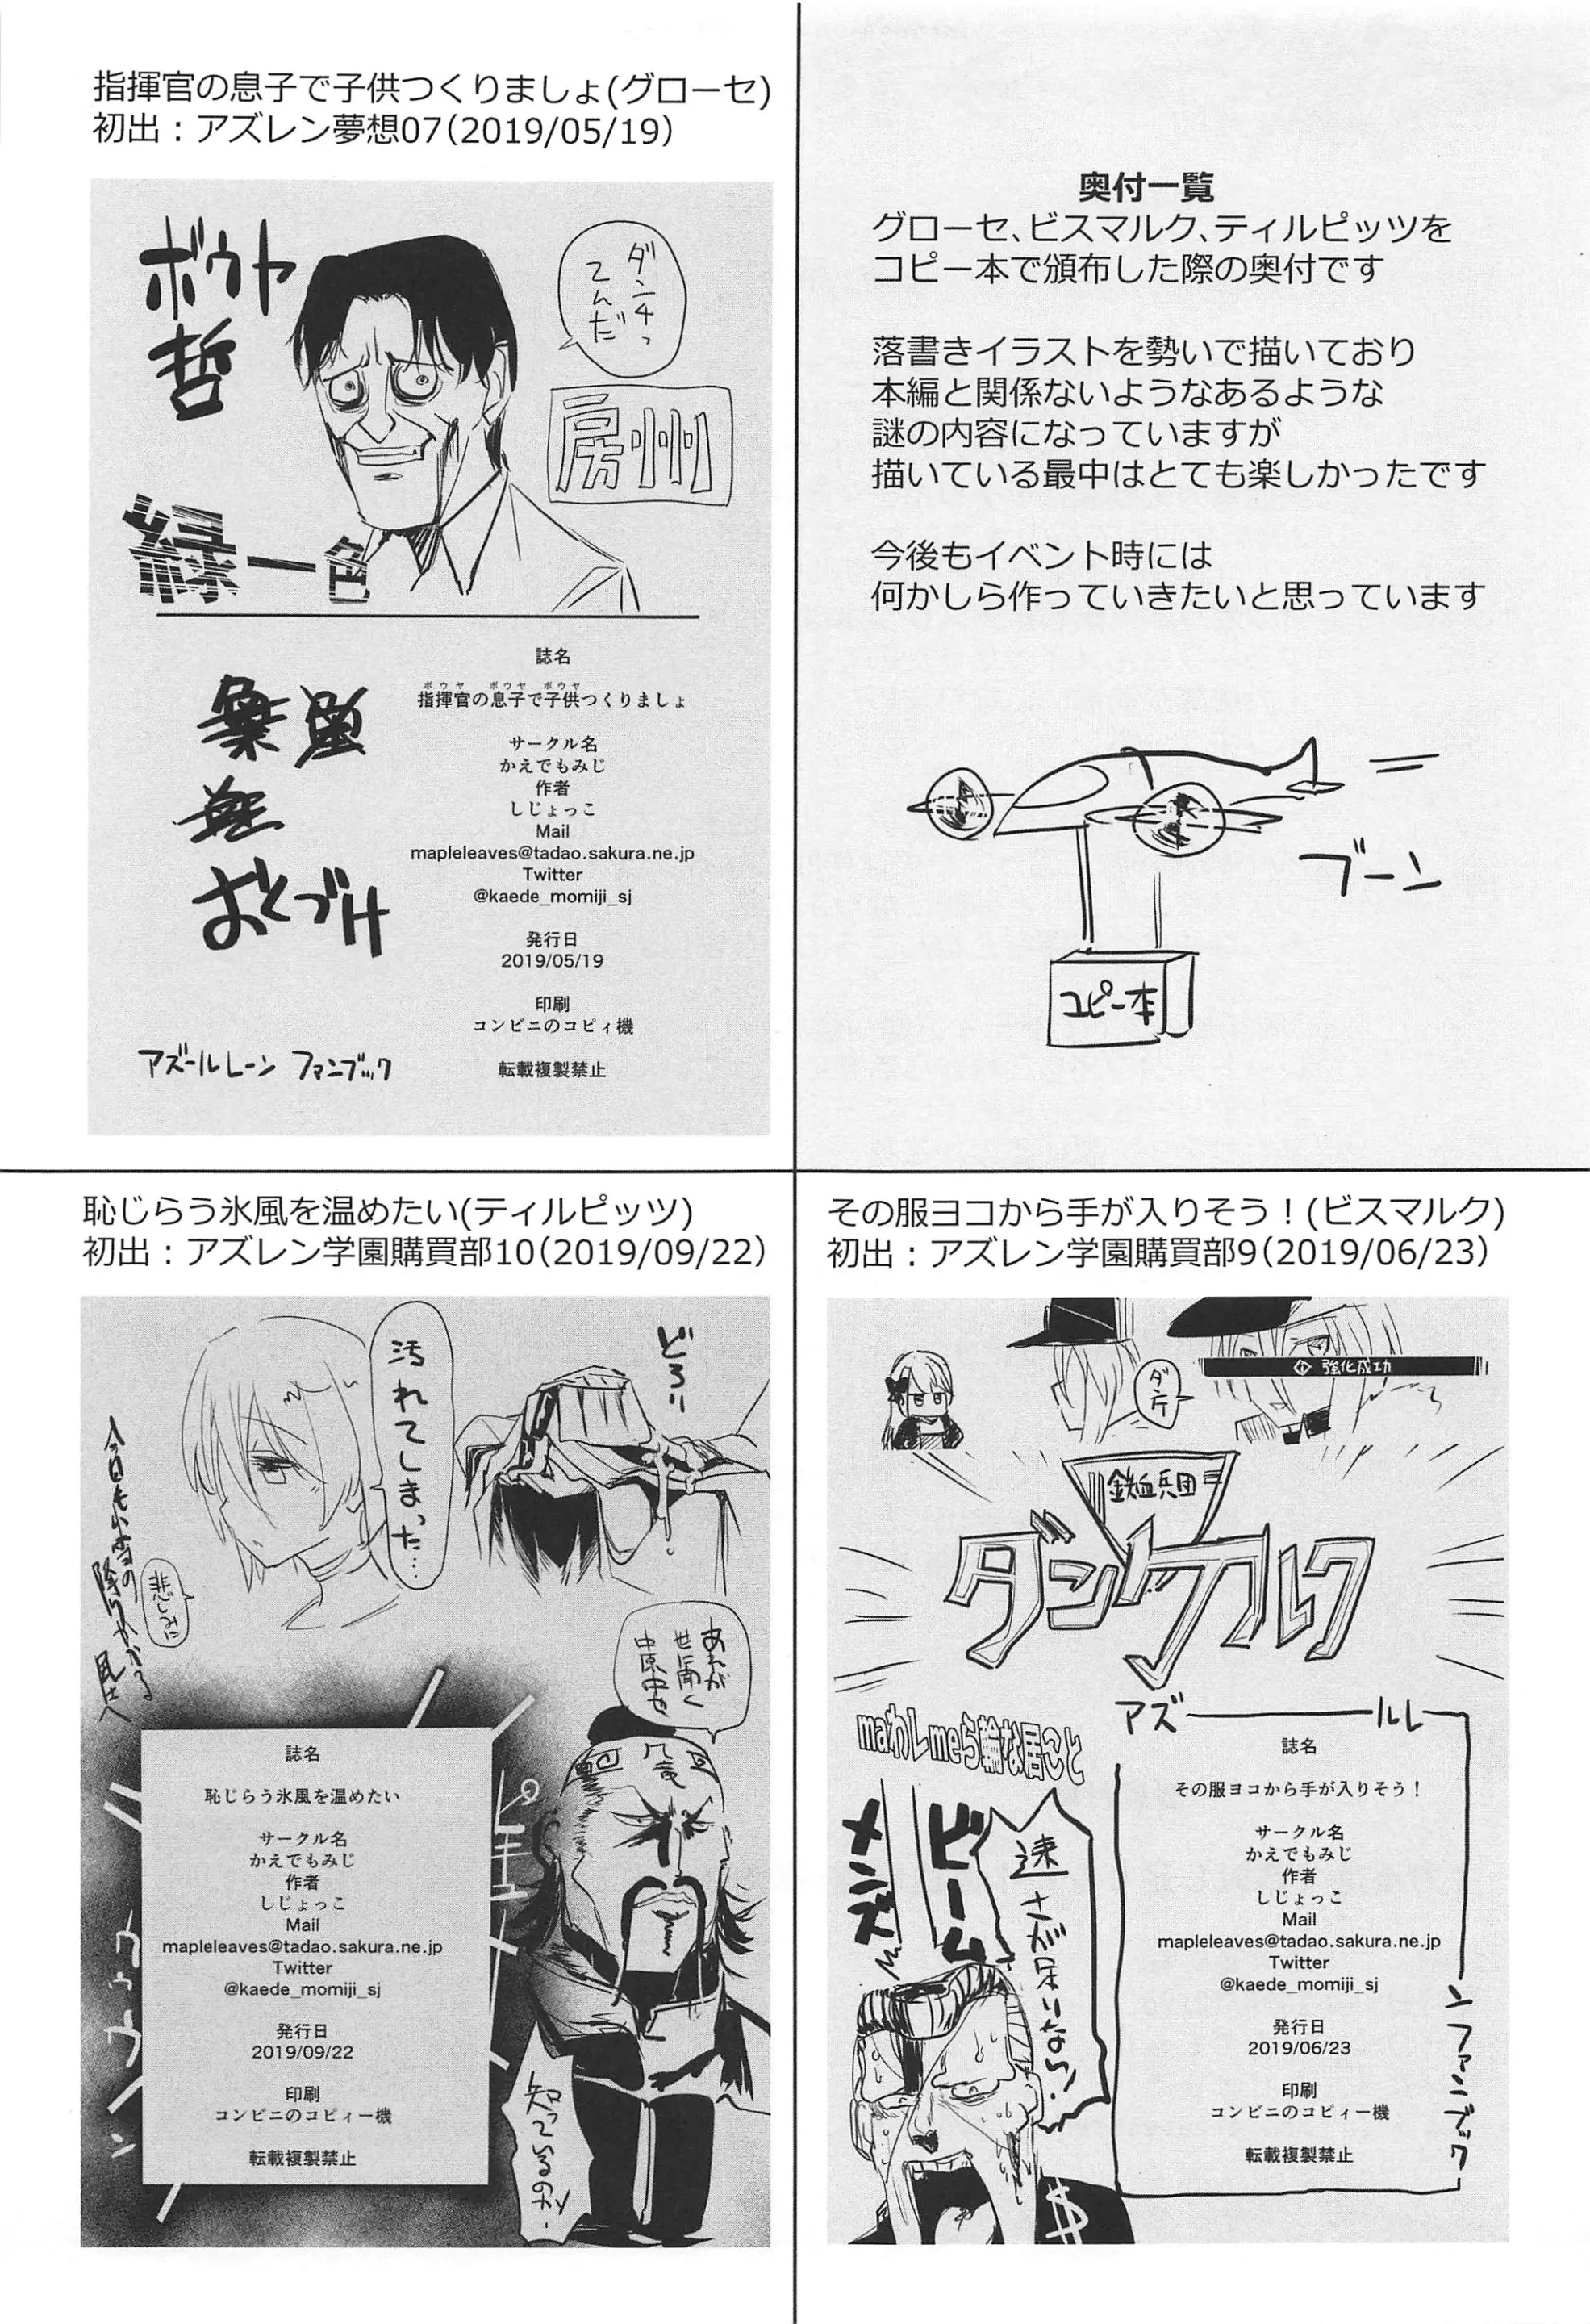 奥付一覧
グローセ、ビスマルク、ティルピッツを
コピー本で頒布した際の奥付です
落書きイラストを勢いで描いており
本編と関係ないようなあるような
謎の内容になっていますが
描いている最中はとても楽しかったです
今後もイベント時には
何かしら作っていきたいと思っています
ブーン
コピー本
指揮官の息子で子供つくりましょ(グローセ)
初出：アズレン夢想07(2019/05/19)
ボウヤ
哲
ダンチっ
てんだ
房州
緑一色
おくづけ
誌名
ボウヤ ボウヤ ボウヤ
指揮官の息子で子供つくりましょ
サークル名
かえでもみじ
作者
しじょっこ
Mail
mapleleaves@tadao.sakura.ne.jp
Twitter
@kaede_momiji_sj
発行日
2019/05/19
印刷
コンビニのコピィ機
転載複製禁止
アズールレーン ファンブック
その服ヨコから手が入りそう！(ビスマルク)
初出：アズレン学園購買部9(2019/06/23)
強化成功
鉄血兵団
ダンケルク
アズールレーンファンブック
maわしmeら輪な居こと
メンズ
ビーム
速さが足りない！
誌名
その服ヨコから手が入りそう！
サークル名
かえでもみじ
作者
しじょっこ
Mail
mapleleaves@tadao.sakura.ne.jp
Twitter
@kaede_momiji_sj
発行日
2019/06/23
印刷
コンビニのコピィー機
転載複製禁止
恥じらう氷風を温めたい(ティルピッツ)
初出：アズレン学園購買部10(2019/09/22)
どろり
汚れてしまった…
悲しみに
あれが
世に聞く
中原中也
知っているのか
誌名
恥じらう氷風を温めたい
サークル名
かえでもみじ
作者
しじょっこ
Mail
mapleleaves@tadao.sakura.ne.jp
Twitter
@kaede_momiji_sj
発行日
2019/09/22
印刷
コンビニのコピィー機
転載複製禁止